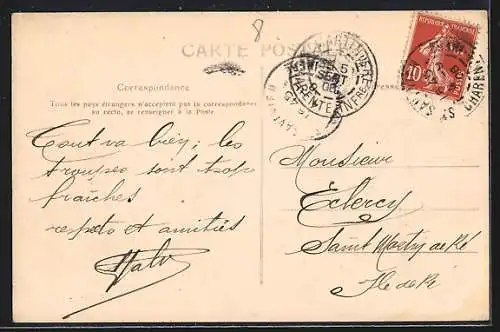 8
CARTE POSTALE
REPUBLIQUE FRANÇAISE
10
Correspondance
Tous les pays étrangers n'acceptent pas la correspondance
au recto, se renseigner à la Poste
Tout va bien ; les
troupes sont trop
fraîches
respects et amitiés
Monsieur
Eclercy
Saint Martin de Ré
Ile de Ré